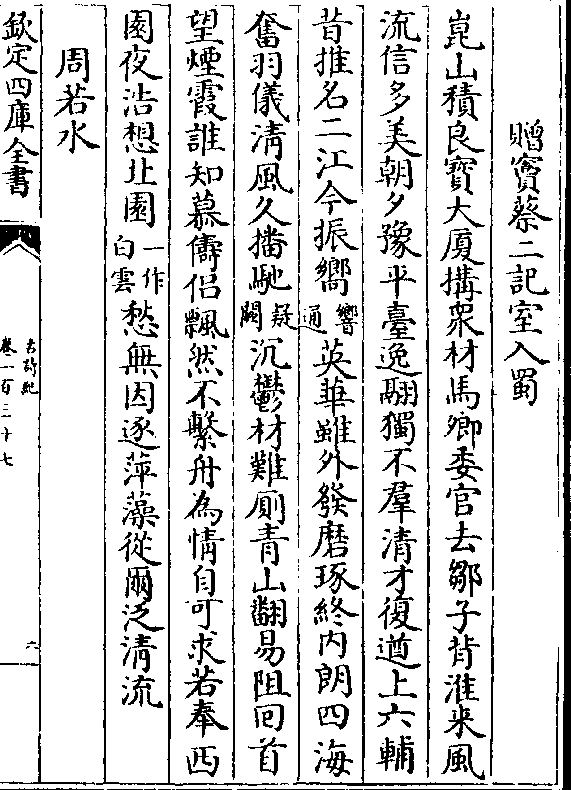 贈竇蔡二記室入蜀
崑山積良寳大厦搆衆材馬卿委官去鄒子背淮来風
流信多美朝夕豫平臺逸翮獨不羣清才復遒上六輔
昔推名二江今振嚮響通英華雖外發磨琢終内朗四海
奮羽儀清風久播馳疑闕沉鬱材難厠青山翻易阻囘首
望煙霞誰知慕儔侣飄然不繫舟為情自可求若奉西
園夜浩想北園一作白雲愁無因逐萍藻從爾泛清流
周若水
欽定四庫全書
古詩紀
卷一百三十七
六